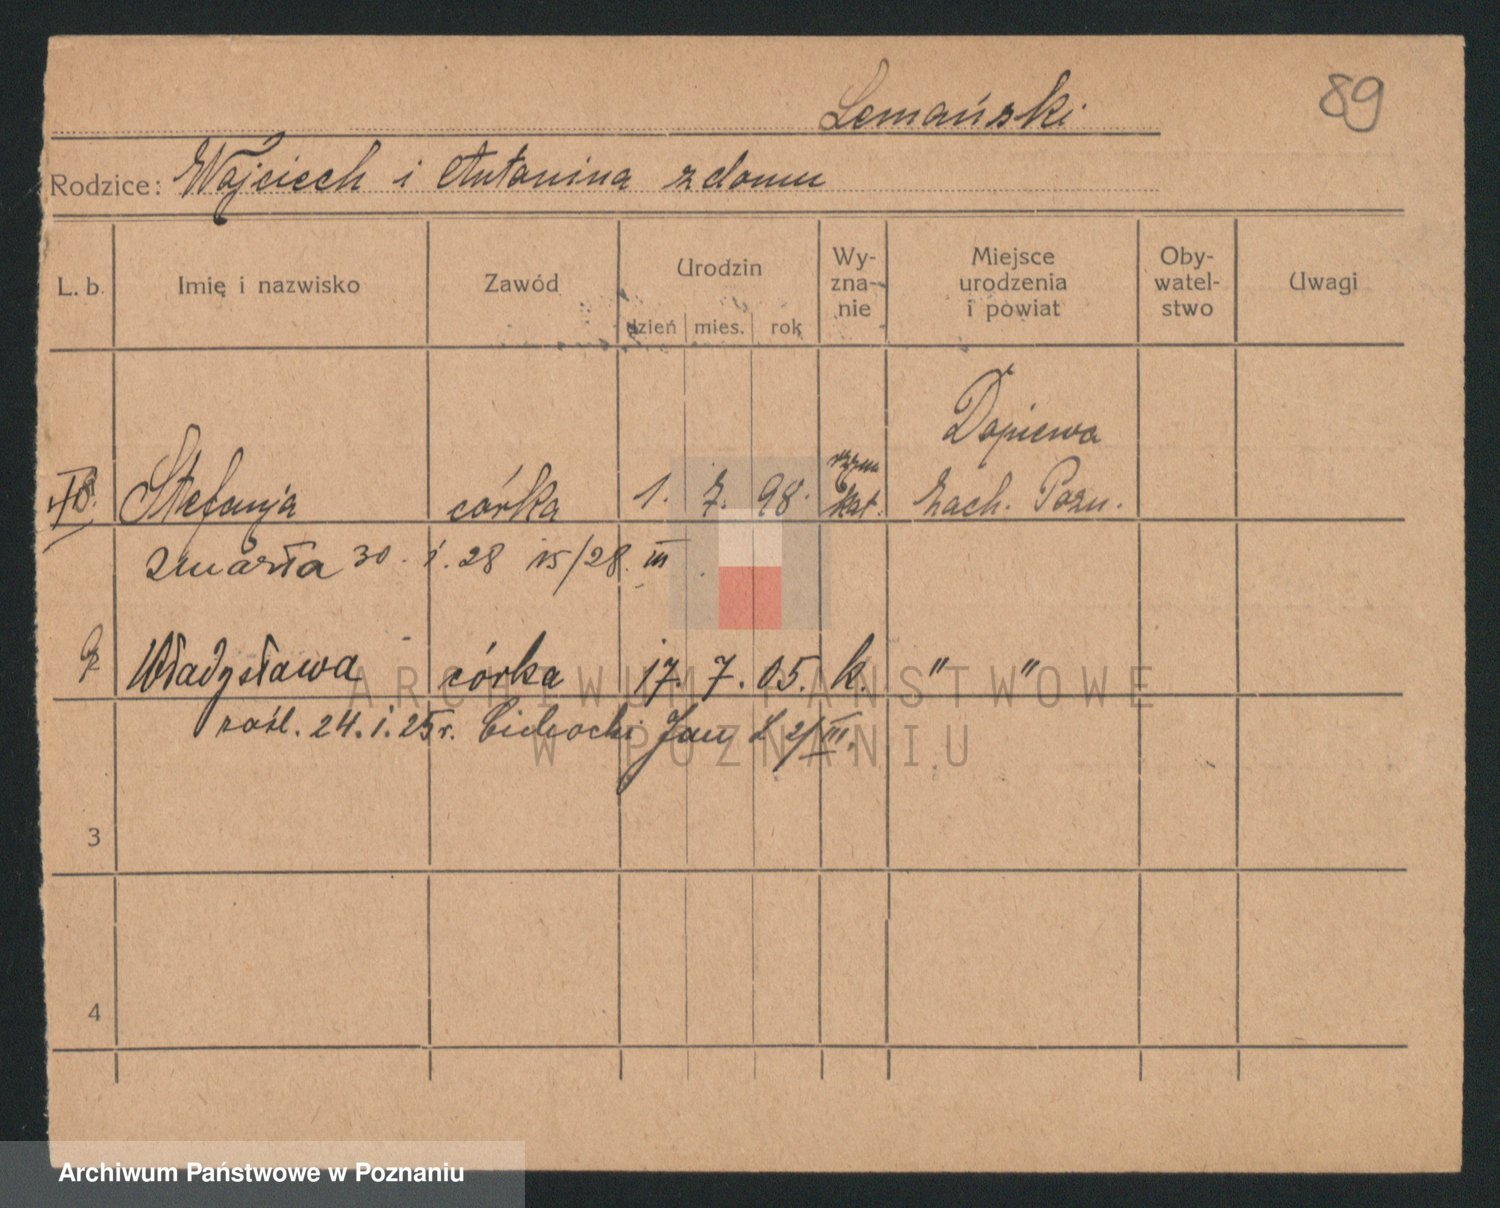 89
Lemański
Rodzice: Wojciech i Antonina z domu
L. b. Imię i nazwisko Zawód Urodzin dzień mies. rok Wy-zna-nie Miejsce urodzenia i powiat Oby-watel-stwo Uwagi
Dopiewa
Stefanja córka 1. 7. 98. rzym kat. zach. Pozn.
zmarła 30. 1. 28 15/28. III
2 Władysława córka 17. 7. 05. k. " "
zaśl. 24. 1. 25 r. Cichocki Jan 2/III.
3
4
ARCHIWUM PAŃSTWOWE
W POZNANIU
Archiwum Państwowe w Poznaniu